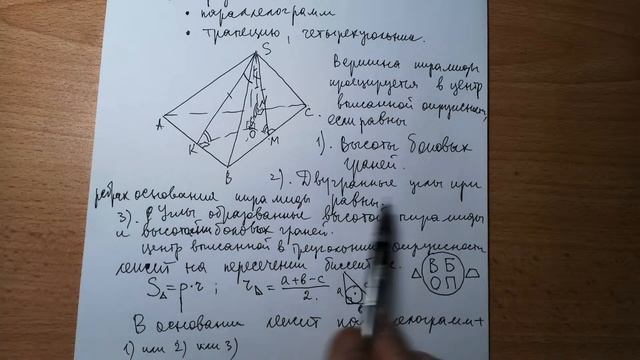 • параллелограмм
• трапецию, четырехугольник.
S
A
K
B
O
M
C
Вершина пирамиды
проецируется в центр
вписанной окружности,
если равны
1). Высоты боковых
граней.
2). Двугранные углы при
ребрах основания пирамиды равны.
3). Углы образованные высотой пирамиды
и высотой боковых граней.
центр вписанной в треугольник окружности
лежит на пересечении биссектрис.
S△ = p·r ; r△ = a+b-c / 2.
a
В Б
О П
В основании лежит параллелограмм +
1) или 2) или 3)